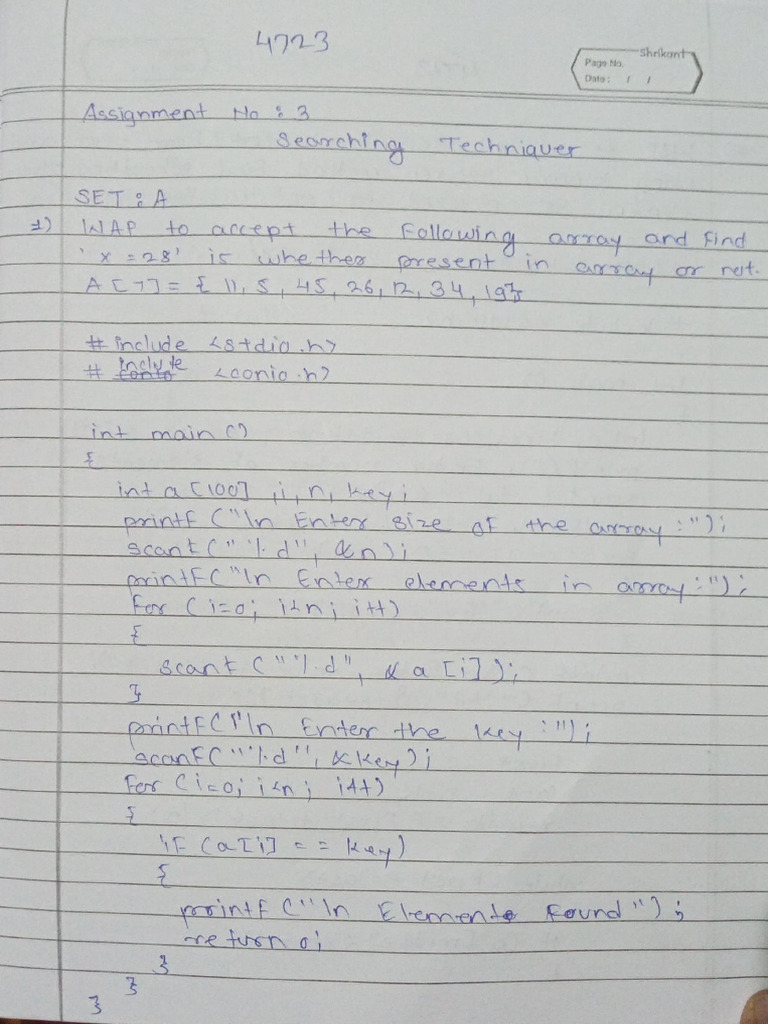 4723
Shrikant
Page No.
Date: / /
Assignment No : 3
Searching Techniques
SET : A
1) WAP to accept the following array and find
'x = 28' is whether present in array or not.
A[7] = { 11, 5, 45, 26, 12, 34, 19};
# include <stdio.h>
# include <conio.h>
int main()
{
int a[100], i, n, key;
printf ("\n Enter size of the array :");
scanf ("%d", &n);
printf ("\n Enter elements in array:");
for (i=0; i<n; i++)
{
scanf ("%d", & a[i]);
}
printf ("\n Enter the key :");
scanf ("%d", &key);
for (i=0; i<n; i++)
{
if (a[i] == key)
{
printf ("\n Element found");
return 0;
}
}
}